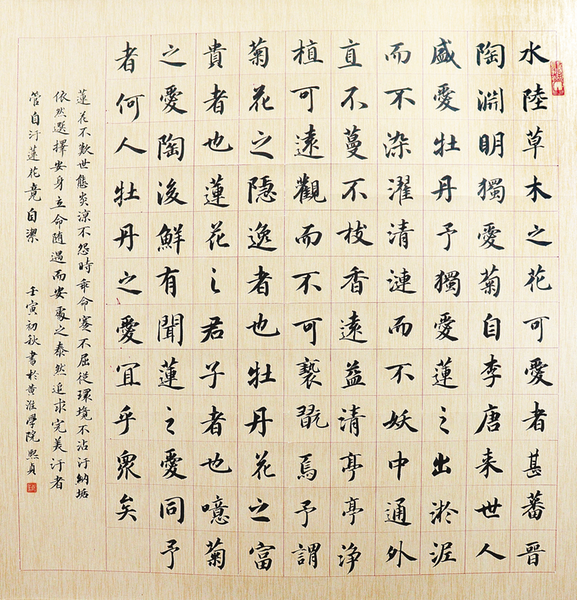 水陸草木之花可愛者甚蕃晉
陶淵明獨愛菊自李唐来世人
盛愛牡丹予獨愛蓮之出淤泥
而不染濯清漣而不妖中通外
直不蔓不枝香遠益清亭亭淨
植可遠觀而不可褻翫焉予謂
菊花之隱逸者也牡丹花之富
貴者也蓮花之君子者也噫菊
之愛陶後鮮有聞蓮之愛同予
者何人牡丹之愛宜乎衆矣
蓮花不歎世態炎涼不怨時乖命蹇不屈從環境不沾汙納垢
依然選擇安身立命随遇而安處之泰然追求完美汙者
管自汙蓮花竟自潔 壬寅初秋書於黄淮學院熙貞